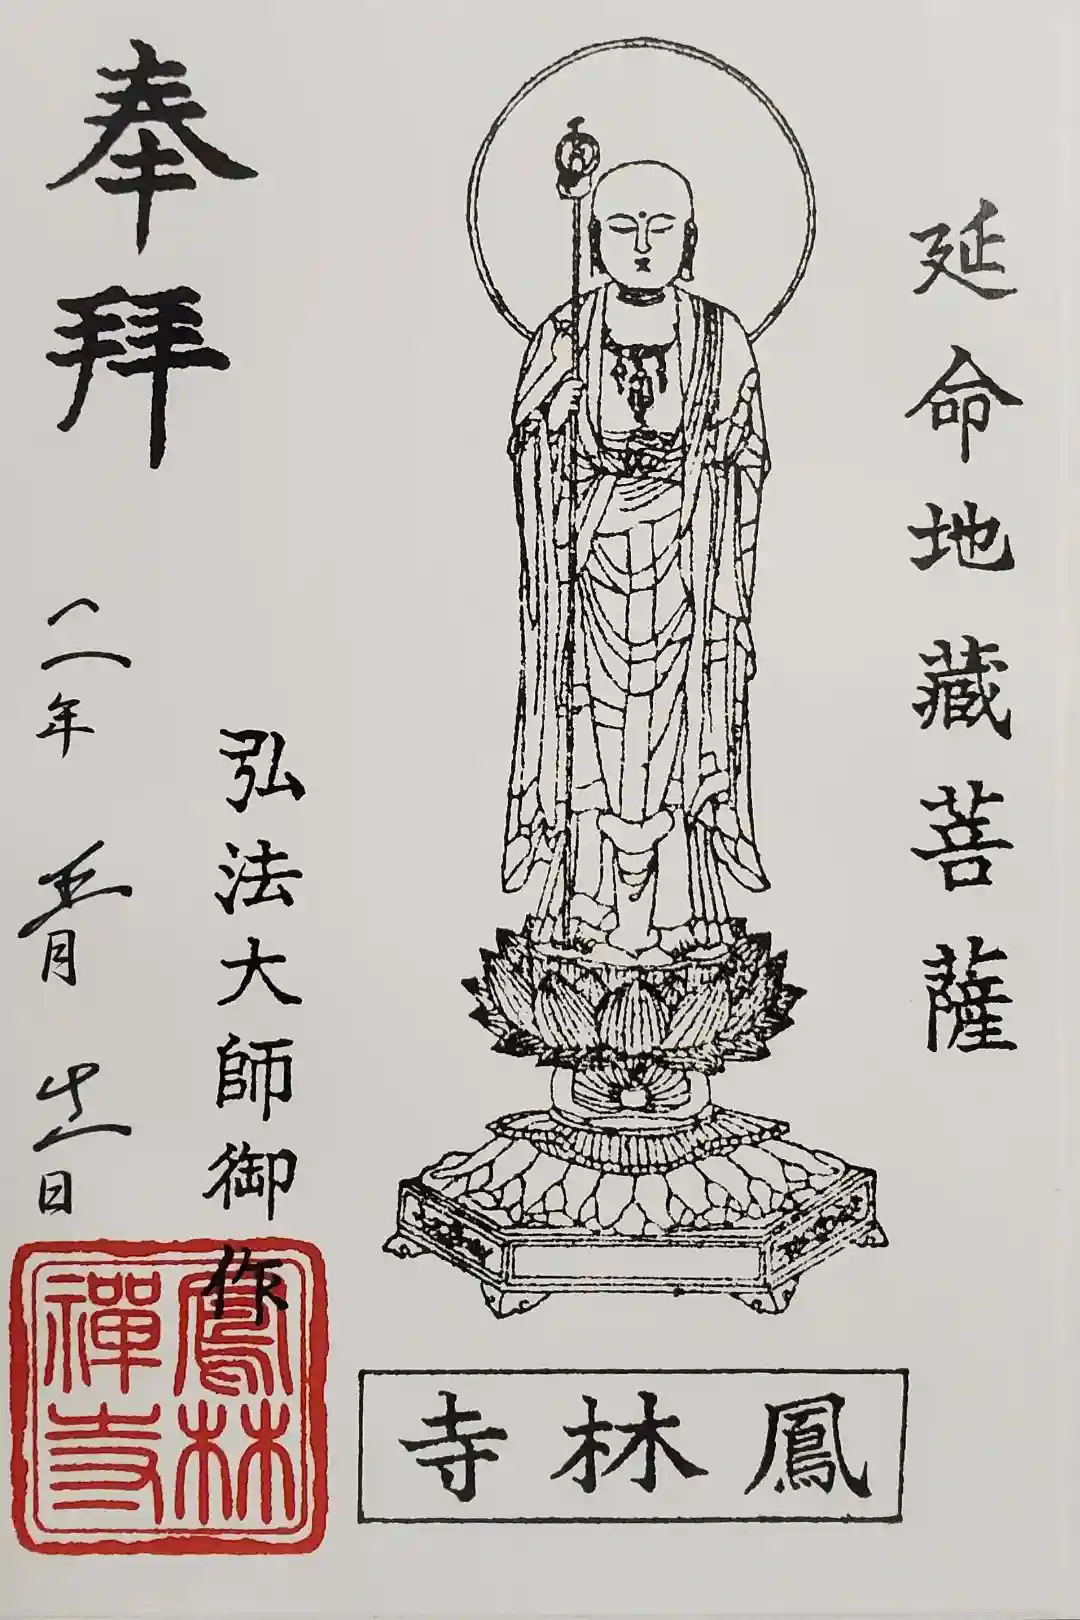 延命地蔵菩薩
弘法大師御作
奉拝
二年五月廿一日
鳳林寺
鳳林
禪寺